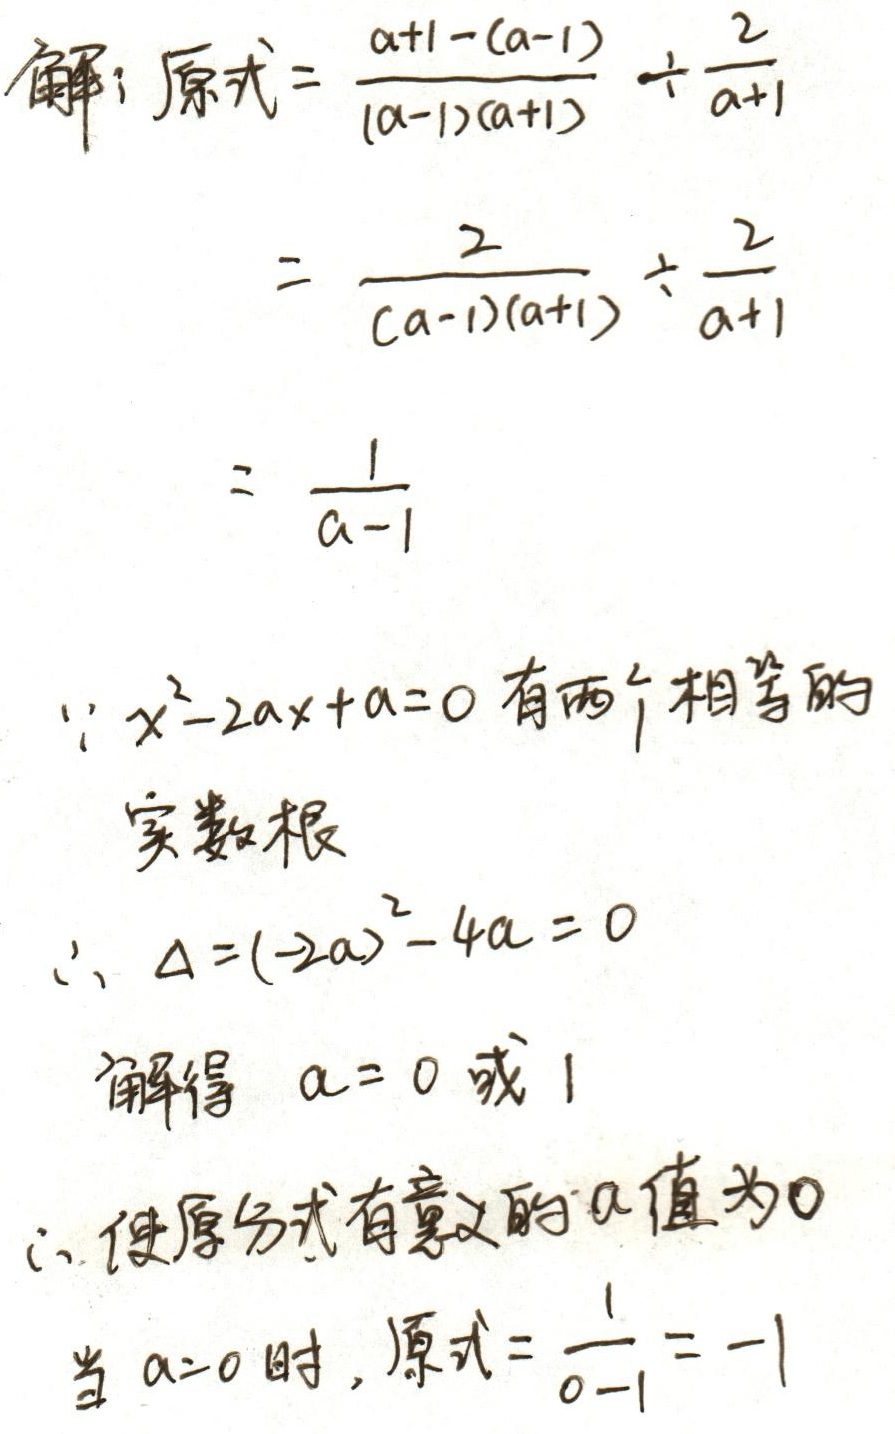 解：原式 = \frac{a+1-(a-1)}{(a-1)(a+1)} ÷ \frac{2}{a+1}
= \frac{2}{(a-1)(a+1)} ÷ \frac{2}{a+1}
= \frac{1}{a-1}
∵ x²-2ax+a=0 有两个相等的
实数根
∴ Δ=(-2a)²-4a=0
解得 a=0 或 1
∴ 使原分式有意义的a值为0
当 a=0 时，原式 = \frac{1}{0-1} = -1